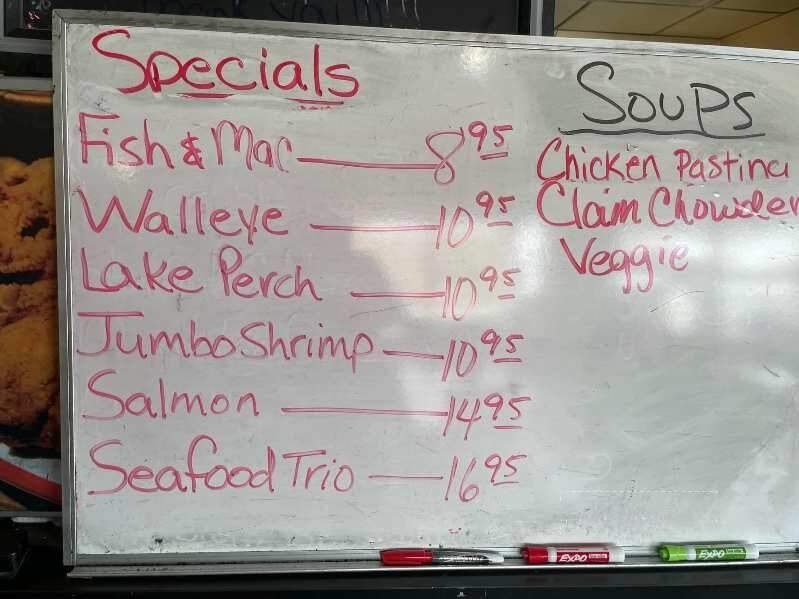 Specials
Fish & Mac 8.95
Walleye 10.95
Lake Perch 10.95
Jumbo Shrimp 10.95
Salmon 14.95
Seafood Trio 16.95
Soups
Chicken Pastina
Claim Chowder
Veggie
EXPO
EXPO